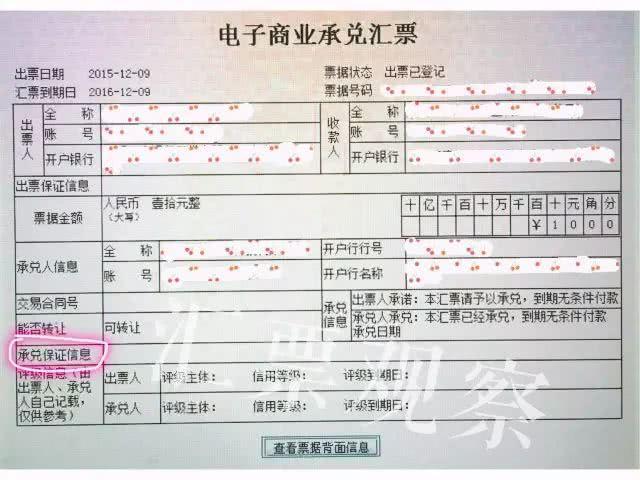 电子商业承兑汇票
出票日期 2015-12-09 票据状态 出票已登记
汇票到期日 2016-12-09 票据号码
出票人 全 称 收款人 全 称
账 号 账 号
开户银行 开户银行
出票保证信息
票据金额 人民币 壹拾元整 十亿千百十万千百十元角分
(大写) ¥1000
承兑人信息 全 称 开户行行号
账 号 开户行名称
交易合同号 承兑信息 出票人承诺：本汇票请予以承兑，到期无条件付款
能否转让 可转让 承兑人承兑：本汇票已经承兑，到期无条件付款
承兑日期
承兑保证信息
评级信息（由出票人、承兑人自己记载，仅供参考） 出票人 评级主体： 信用等级： 评级到期日：
承兑人 评级主体： 信用等级： 评级到期日：
汇票观察
查看票据背面信息